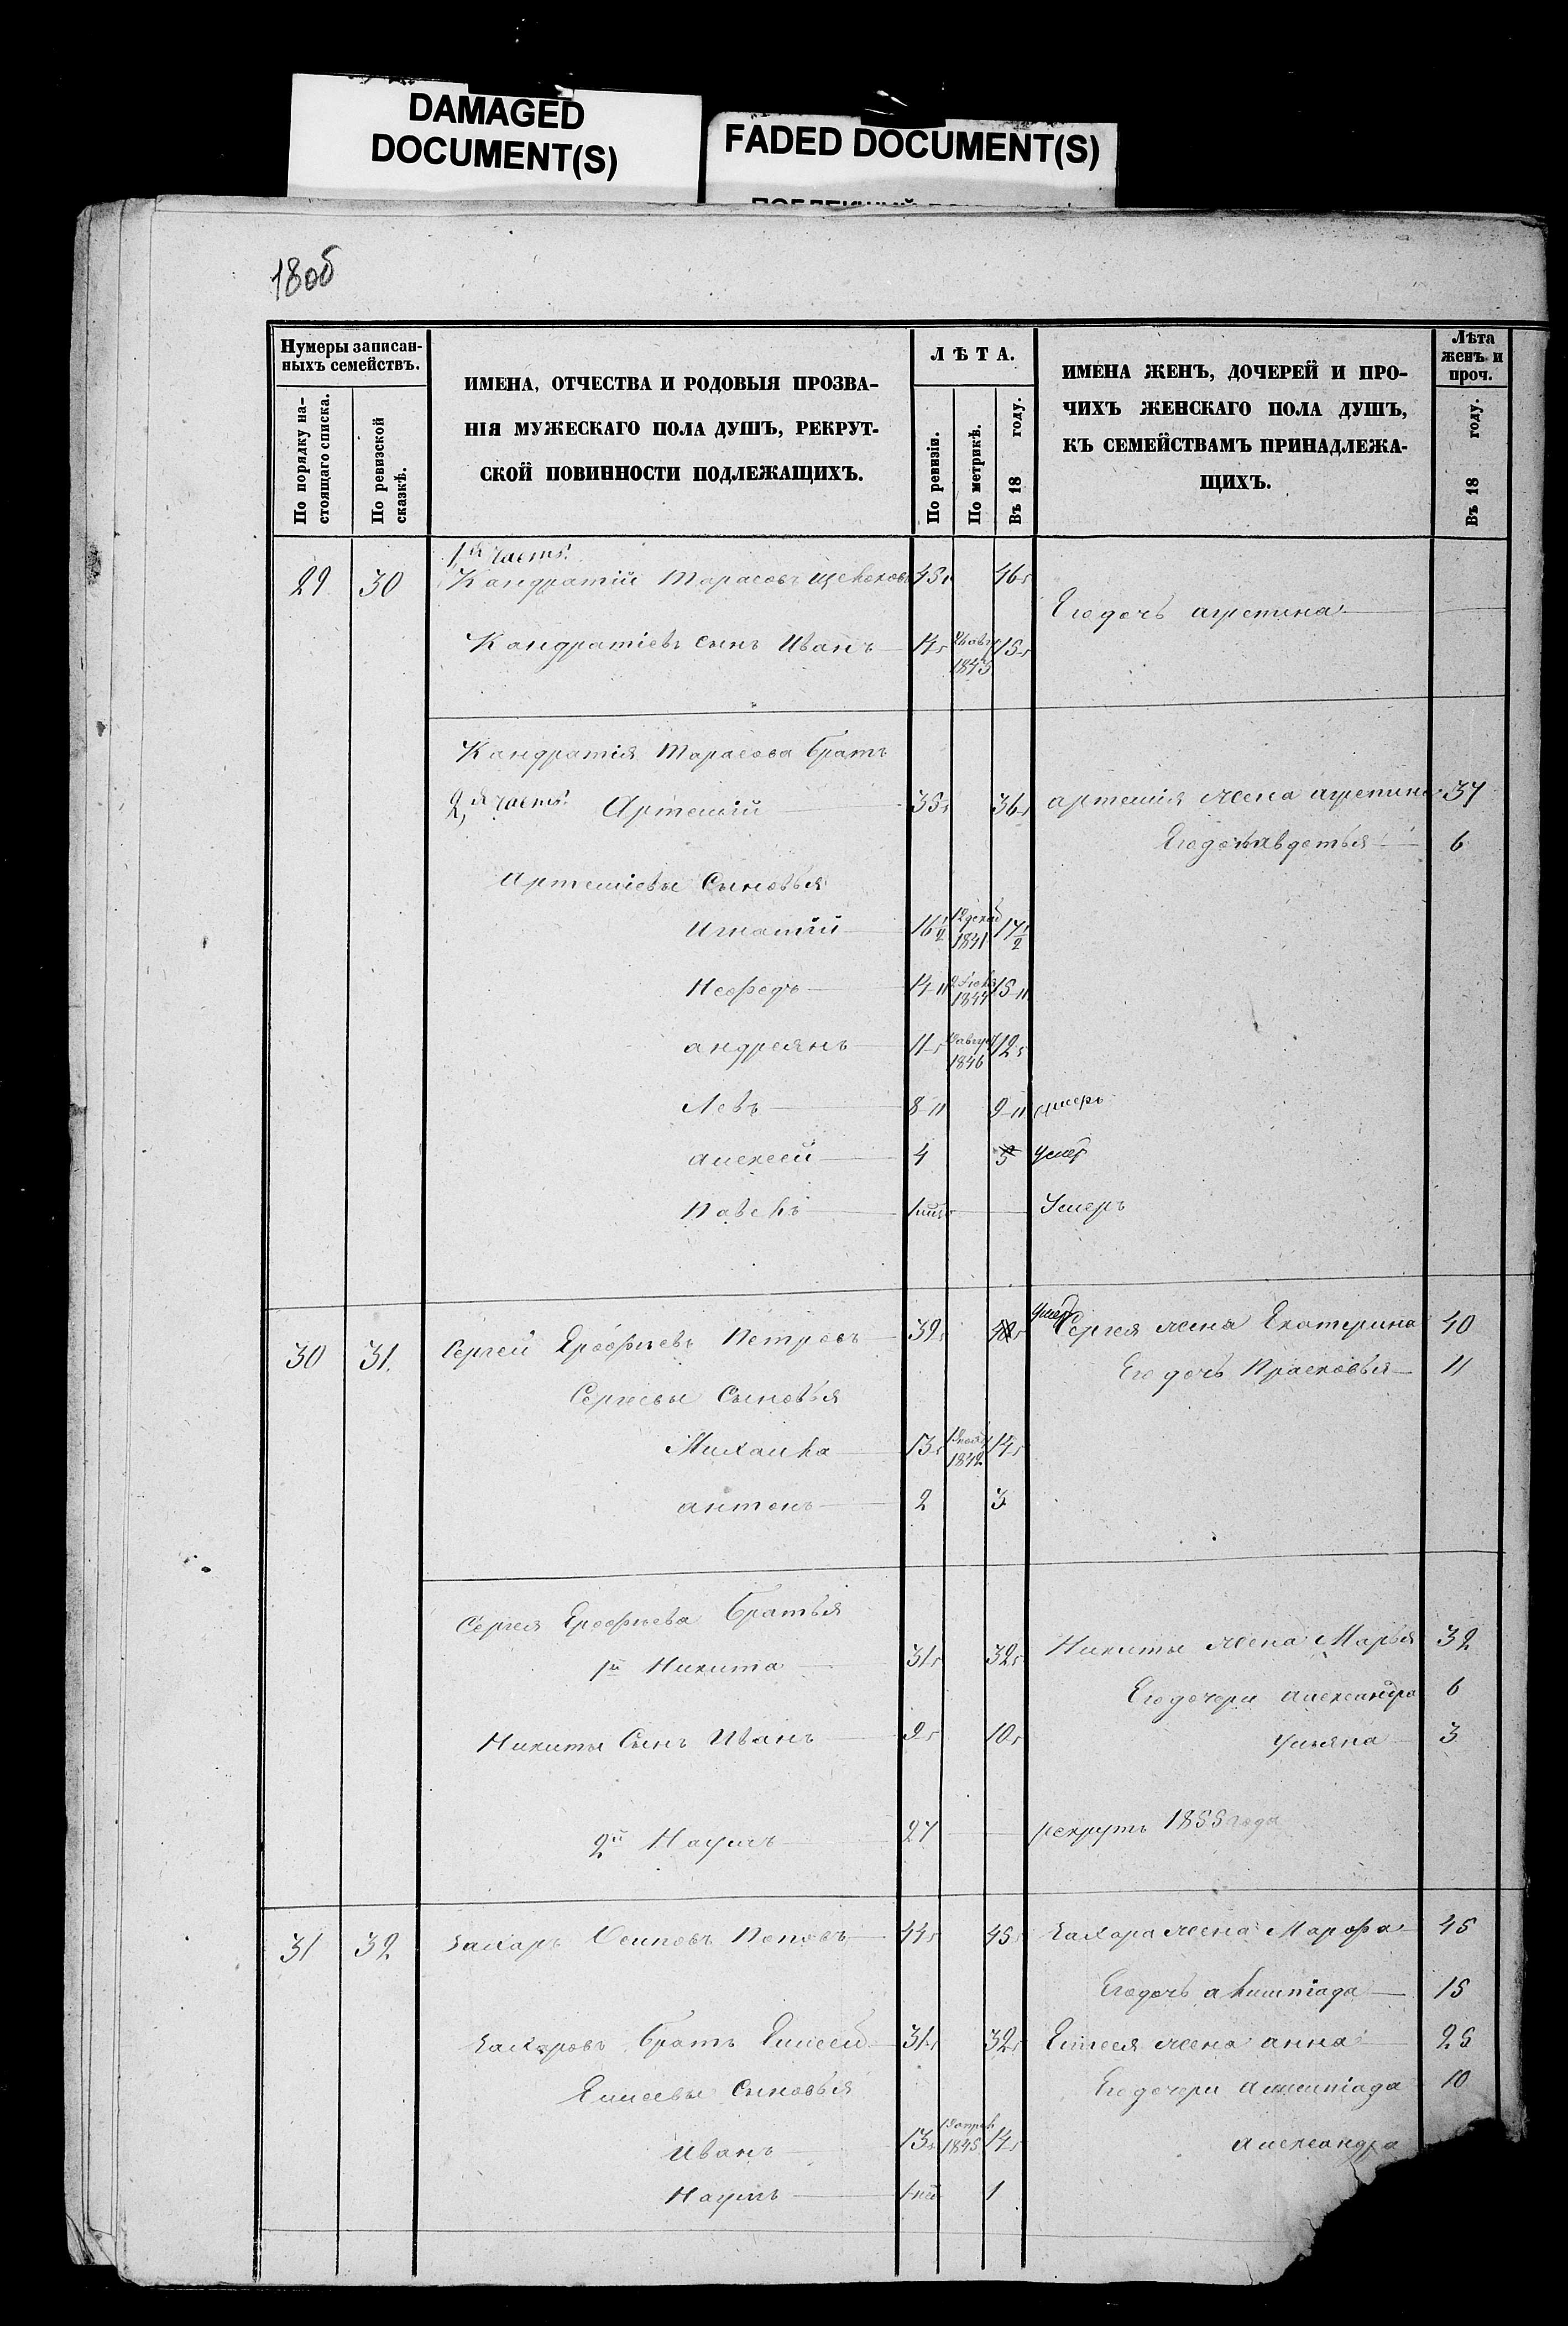 DAMAGED
DOCUMENT(S)
FADED DOCUMENT(S)
18об
Нумеры записан-
ныхъ семействъ.
По порядку на-
стоящаго списка.
По ревизской
сказкѣ.
ИМЕНА, ОТЧЕСТВА И РОДОВЫЯ ПРОЗВА-
НІЯ МУЖЕСКАГО ПОЛА ДУШЪ, РЕКРУТ-
СКОЙ ПОВИННОСТИ ПОДЛЕЖАЩИХЪ.
ЛѢТА.
По ревизіи.
По метрикѣ.
Въ 18 году.
ИМЕНА ЖЕНЪ, ДОЧЕРЕЙ И ПРО-
ЧИХЪ ЖЕНСКАГО ПОЛА ДУШЪ,
КЪ СЕМЕЙСТВАМЪ ПРИНАДЛЕЖА-
ЩИХЪ.
Лѣта
женъ и
проч.
Въ 18 году.
1я часть
29 30 Кандратій Тарасовъ 45 46
Его дочь агрепина
Кандратіевъ сынъ Иванъ 14 1843 15
Кандратія Тарасова братъ
2я часть Артемій 35 36 артемія жена агрепина 37
Его дочь авдотья 6
Артеміевы Сыновья
Игнатій 16 1/2 12 декаб 1841 17 1/2
Нефедъ 14 1844 15
андреянъ 11 август 1846 12
Левъ 8 9 умеръ
алексей 4 5 умер
Павелъ Умеръ
30 31. Сергей Ерофѣевъ Петровъ 39 40 умер Сергея жена Екатерина 40
Его дочь Прасковья 11
Сергеевы Сыновья
Михаила 13 1842 14
антонъ 2 3
Сергея Ерофѣева братья
1й Никита 31 32 Никиты жена Марья 32
Его дочери александра 6
Никиты Сынъ Иванъ 9 10 ульяна 3
2й Наумъ 27 рекрутъ 1855 года
31 32 Захаръ Осиповъ Поповъ 44 45 Захара жена Марфа 45
Его дочь 15
Захаровъ братъ Елисей 31 32 Елисея жена анна 25
Елисеевы сыновья Его дочери 10
Иванъ 13 1845 14 александра
Наумъ 1